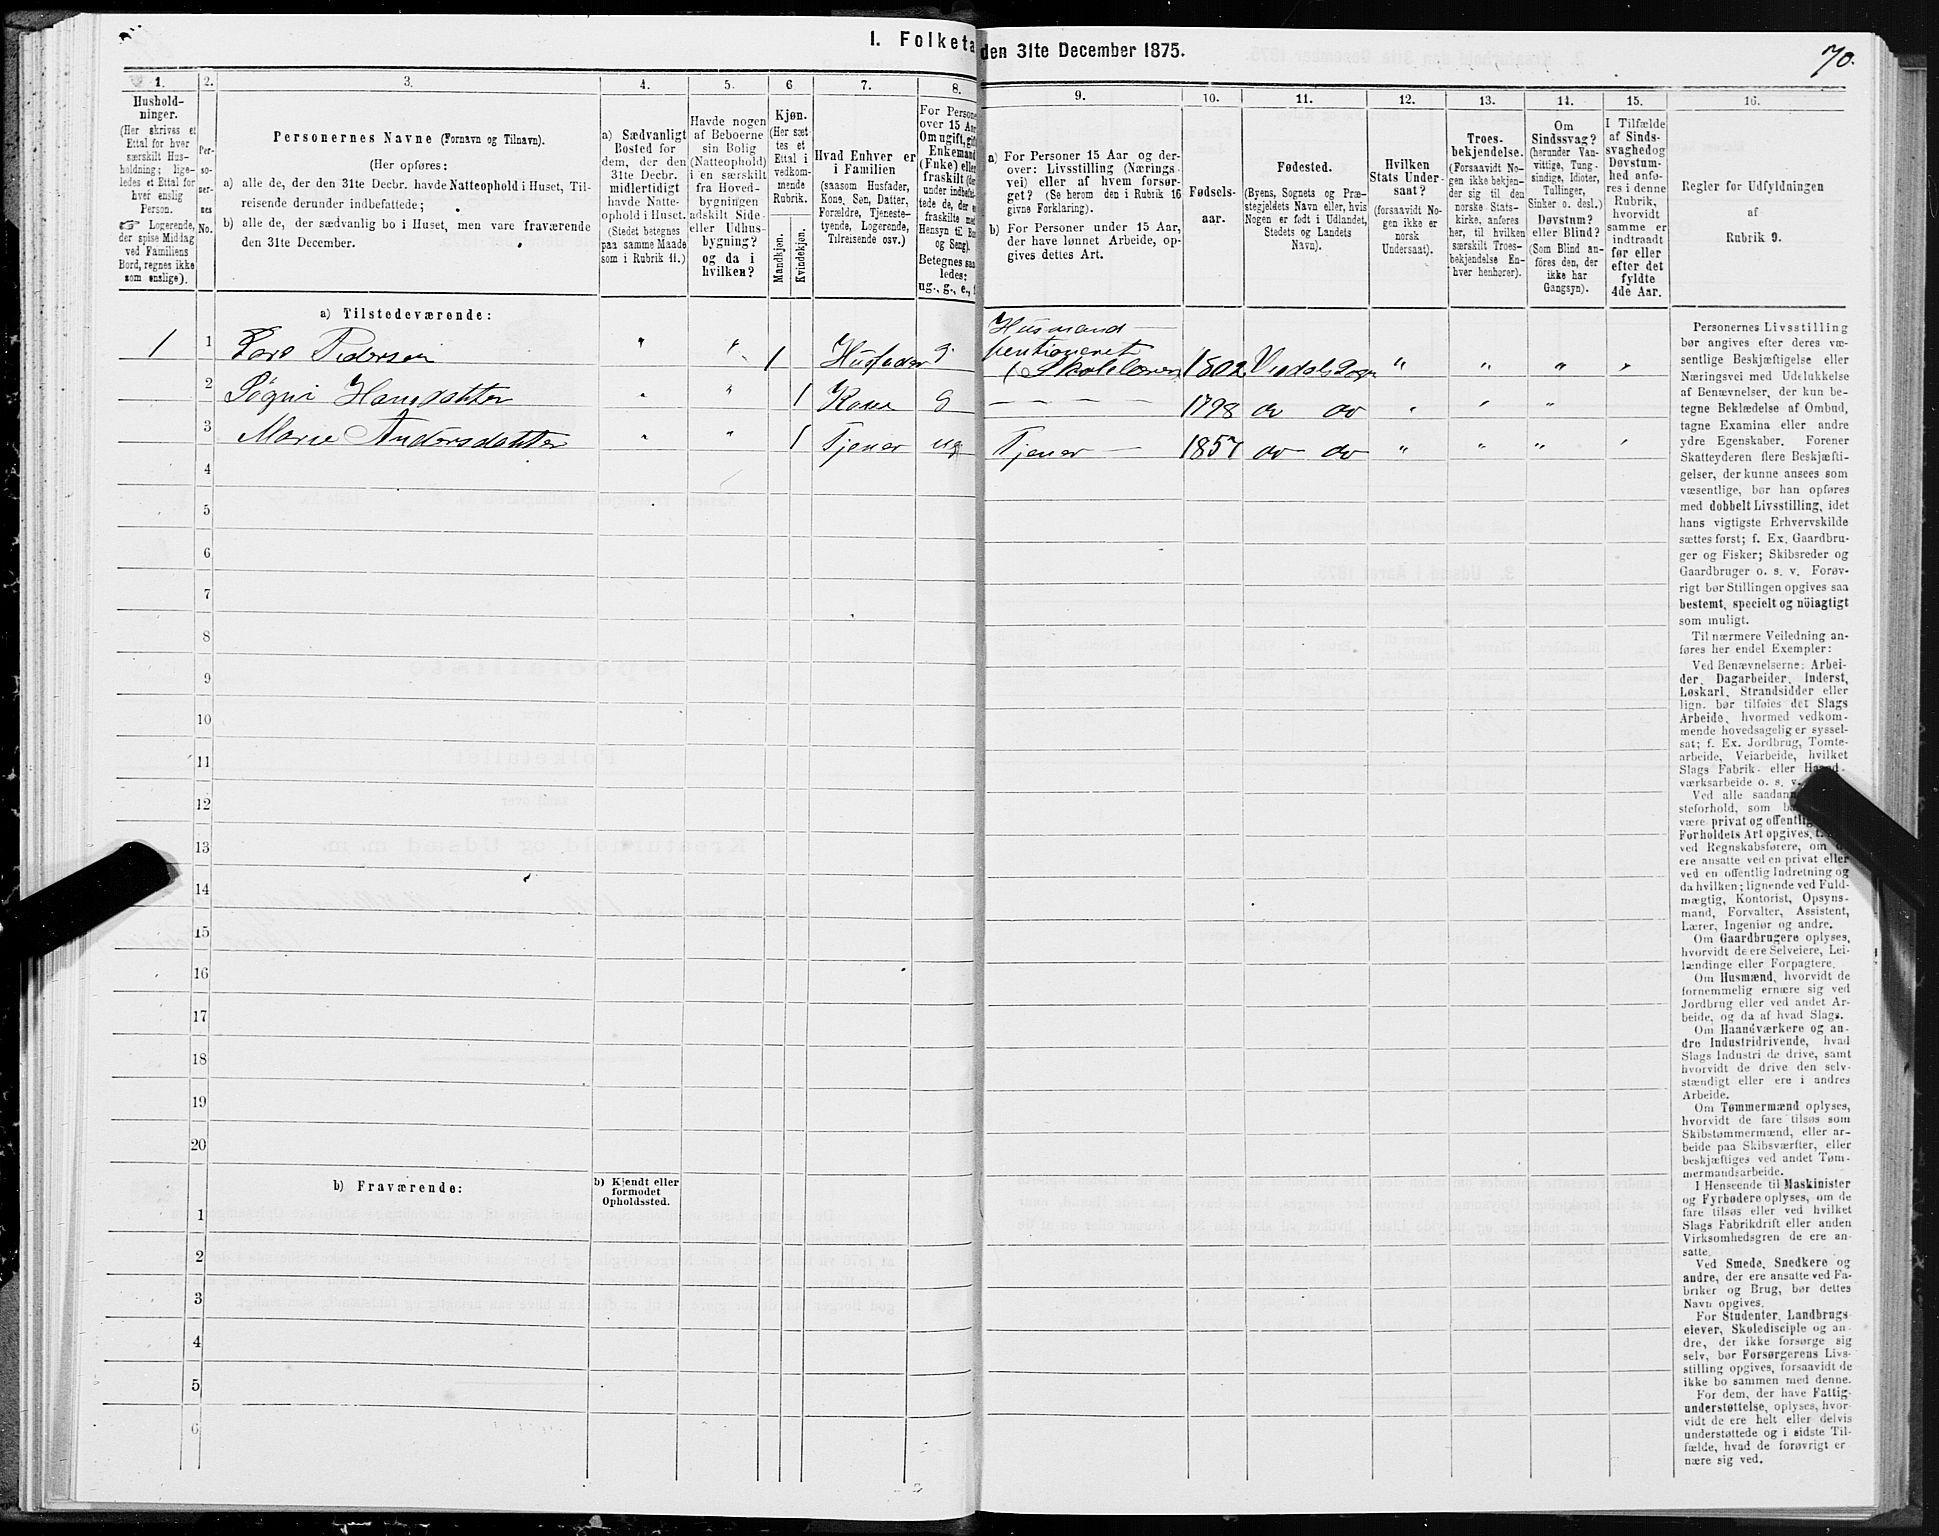 I. Folketa
den 31te December 1875.
70.
1.
2.
3.
4.
5.
6
7.
8.
9.
10.
11.
12.
13.
14.
15.
16.
Hushold-
ninger.
(Her skrives et
Ettal for hver
særskilt Hus-
holdning; lige-
ledes et Ettal for
hver enslig
Person.
☞ Logerende,
der spise Middag
ved Familiens
Bord, regnes ikke
som enslige).
Per-
so-
ner-
nes
No.
Personernes Navne (Fornavn og Tilnavn).
(Her opføres:
a) alle de, der den 31te Decbr. havde Natteophold i Huset, Til-
reisende derunder indbefattede;
b) alle de, der sædvanlig bo i Huset, men vare fraværende
den 31te December.
a) Sædvanligt
Bosted for
dem, der den
31te Decbr.
midlertidigt
havde Natte-
ophold i Huset.
(Stedet betegnes
paa samme Maade
som i Rubrik 11.)
Havde nogen
af Beboerne
sin Bolig
(Natteophold)
i en særskilt
fra Hoved-
bygningen
adskilt Side-
eller Udhus-
bygning?
og da i
hvilken?
Kjøn.
(Her sæt-
tes et
Ettal i
vedkom-
mende
Rubrik.
Mandkjøn.
Kvindekjøn.
Hvad Enhver er
i Familien
(saasom Husfader,
Kone, Søn, Datter,
Forældre, Tjeneste-
tyende, Logerende,
Tilreisende osv.)
For Persone
over 15 Aar
Om ugift, gift
Enkemand
(Enke) eller
fraskilt (der
under indbefat-
tede de, der e
fraskilte med
Hensyn til Bo
og Seng).
Betegnes saa
ledes:
ug., g., e., f
a) For Personer 15 Aar og der-
over: Livsstilling (Nærings-
vei) eller af hvem forsør-
get? (Se herom den i Rubrik 16
givne Forklaring).
b) For Personer under 15 Aar,
der have lønnet Arbeide, op-
gives dettes Art.
Fødsels-
aar.
Fødested.
(Byens, Sognets og Præ-
stegjeldets Navn eller, hvis
Nogen er født i Udlandet,
Stedets og Landets
Navn).
Hvilken
Stats Under-
saat?
(forsaavidt No-
gen ikke er
norsk
Undersaat).
Troes-
bekjendelse.
(Forsaavidt No-
gen ikke bekjen-
der sig til den
norske Stats-
kirke, anføres
her, til hvilken
særskilt Troes-
bekjendelse En-
hver henhører).
Om
Sindssvag?
(herunder Van-
vittige, Tung-
sindige, Idioter,
Tullinger,
Sinker o. desl.)
Døvstum?
eller Blind?
(Som Blind an-
føres den, der
ikke har
Gangsyn).
I Tilfælde
af Sinds-
svaghed og
Døvstum-
hed anfø-
res i denne
Rubrik,
hvorvidt
samme er
indtraadt
før eller
efter det
fyldte
4de Aar.
Regler for Udfyldningen
af
Rubrik 9.
a) Tilstedeværende:
1 1 Lars Pedersen " " 1 Husfader g Husmand
pentioneret
Skolelærer 1802 Viodals Sogn " " " "
2 Hansdatter " " 1 Kone g — — — — 1798 do do " " "
3 Marie Andersdatter " " 1 Tjener ug Tjener — 1857 do do " " " "
4
5
6
7
8
9
10
11
12
13
14
15
16
17
18
19
20
b) Fraværende:
b) Kjendt eller
formodet
Opholdssted.
1
2
3
4
5
6
Personernes Livsstilling
bør angives efter deres væ-
sentlige Beskjæftigelse eller
Næringsvei med Udelukkelse
af Benævnelser, der kun be-
tegne Beklædelse af Ombud,
tagne Examina eller andre
ydre Egenskaber. Forener
Skatteyderen flere Beskjæfti-
gelser, der kunne ansees som
væsentlige, bør han opføres
med dobbelt Livsstilling, idet
hans vigtigste Erhvervskilde
sættes først; f. Ex. Gaardbru-
ger og Fisker; Skibsreder og
Gaardbruger o. s. v. Forøv-
rigt bør Stillingen opgives saa
bestemt, specielt og nöiagtigt
som muligt.
Til nærmere Veiledning an-
føres her endel Exempler:
Ved Benævnelserne: Arbei-
der, Dagarbeider, Inderst,
Løskarl, Strandsidder eller
lign. bør tilføies det Slags
Arbeide, hvormed vedkom-
mende hovedsagelig er syssel-
sat; f. Ex. Jordbrug, Tomte-
arbeide, Veiarbeide, hvilket
Slags Fabrik- eller Haand-
værksarbeide o. s. v.
Ved alle saadan
steforhold, som b
være privat og offentlig
Forholdets Art opgives, f.
ved Regnskabsførere, om
ere ansatte ved en privat eller
ved en offentlig Indretning og
da hvilken; lignende ved Fuld-
mægtig, Kontorist, Opsyns-
mand, Forvalter, Assistent,
Lærer, Ingeniør og andre.
Om Gaardbrugere oplyses,
hvorvidt de ere Selveiere, Lei-
lændinge eller Forpagtere.
Om Husmænd, hvorvidt de
fornemmelig ernære sig ved
Jordbrug eller ved andet Ar-
beide, og da af hvad Slags.
Om Haandværkere og an-
dre Industridrivende, hvad
Slags Industri de drive, samt
hvorvidt de drive den selv-
stændigt eller ere i andres
Arbeide.
Om Tømmermænd oplyses,
hvorvidt de fare tilsøs som
Skibstømmermænd, eller ar-
beide paa Skibsværfter, eller
beskjæftiges ved andet Tøm-
mermandsarbeide.
I Henseende til Maskinister
og Fyrbødere oplyses, om de
fare tilsøs eller ved hvilket
Slags Fabrikdrift eller anden
Virksomhedsgren de ere an-
satte.
Ved Smede, Snedkere og
andre, der ere ansatte ved Fa-
briker og Brug, bør dettes
Navn opgives.
For Studenter, Landbrugs-
elever, Skoledisciple og an-
dre, der ikke forsørge sig
selv, bør Forsørgerens Livs-
stilling opgives, forsaavidt de
ikke bo sammen med denne.
For dem, der have Fattig-
understøttelse, oplyses, hvor-
vidt de ere helt eller delvis
understøttede og i sidste Til-
fælde, hvad de forøvrigt er
nære sig ved.